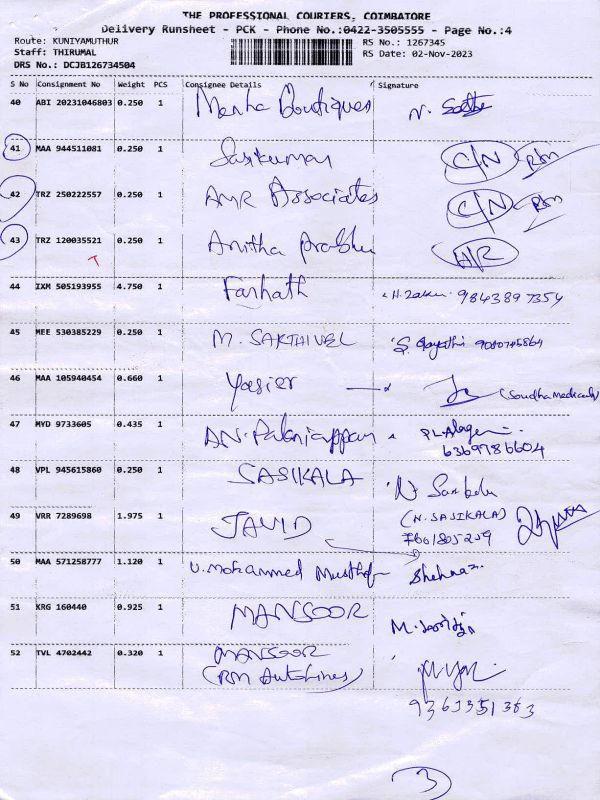 THE PROFESSIONAL COURIERS, COIMBATORE
Delivery Runsheet - PCK - Phone No.:0422-3505555 - Page No.:4
Route: KUNIYAMUTHUR RS No.: 1267345
Staff: THIRUMAL RS Date: 02-Nov-2023
DRS No.: DCJB126734504
S No Consignment No Weight PCS Consignee Details Signature
40 ABI 20231046803 0.250 1 Menha Boutiques
41 MAA 944511081 0.250 1 Sasikumar C/N RM
42 TRZ 250222557 0.250 1 AMR Associates C/N RM
43 TRZ 120035521 0.250 1 Anitha Prabhu H/R
44 IXM 505193955 4.750 1 Farhath 9843897354
45 MEE 530385229 0.250 1 M. SAKTHIVEL
46 MAA 105940454 0.660 1 Yasier (Soudha Medicals)
47 MYD 9733605 0.435 1 AN. Palaniappan
6369786604
48 VPL 945615860 0.250 1 SASIKALA
49 VRR 7289698 1.975 1 JAVID (N. SASIKALA)
50 MAA 571258777 1.120 1 U. Mohammed Musthafa Shehnaz
51 KRG 160440 0.925 1 MANSOOR
52 TVL 4702442 0.320 1 MANSOOR
(RM Autolines)
9361351363
3